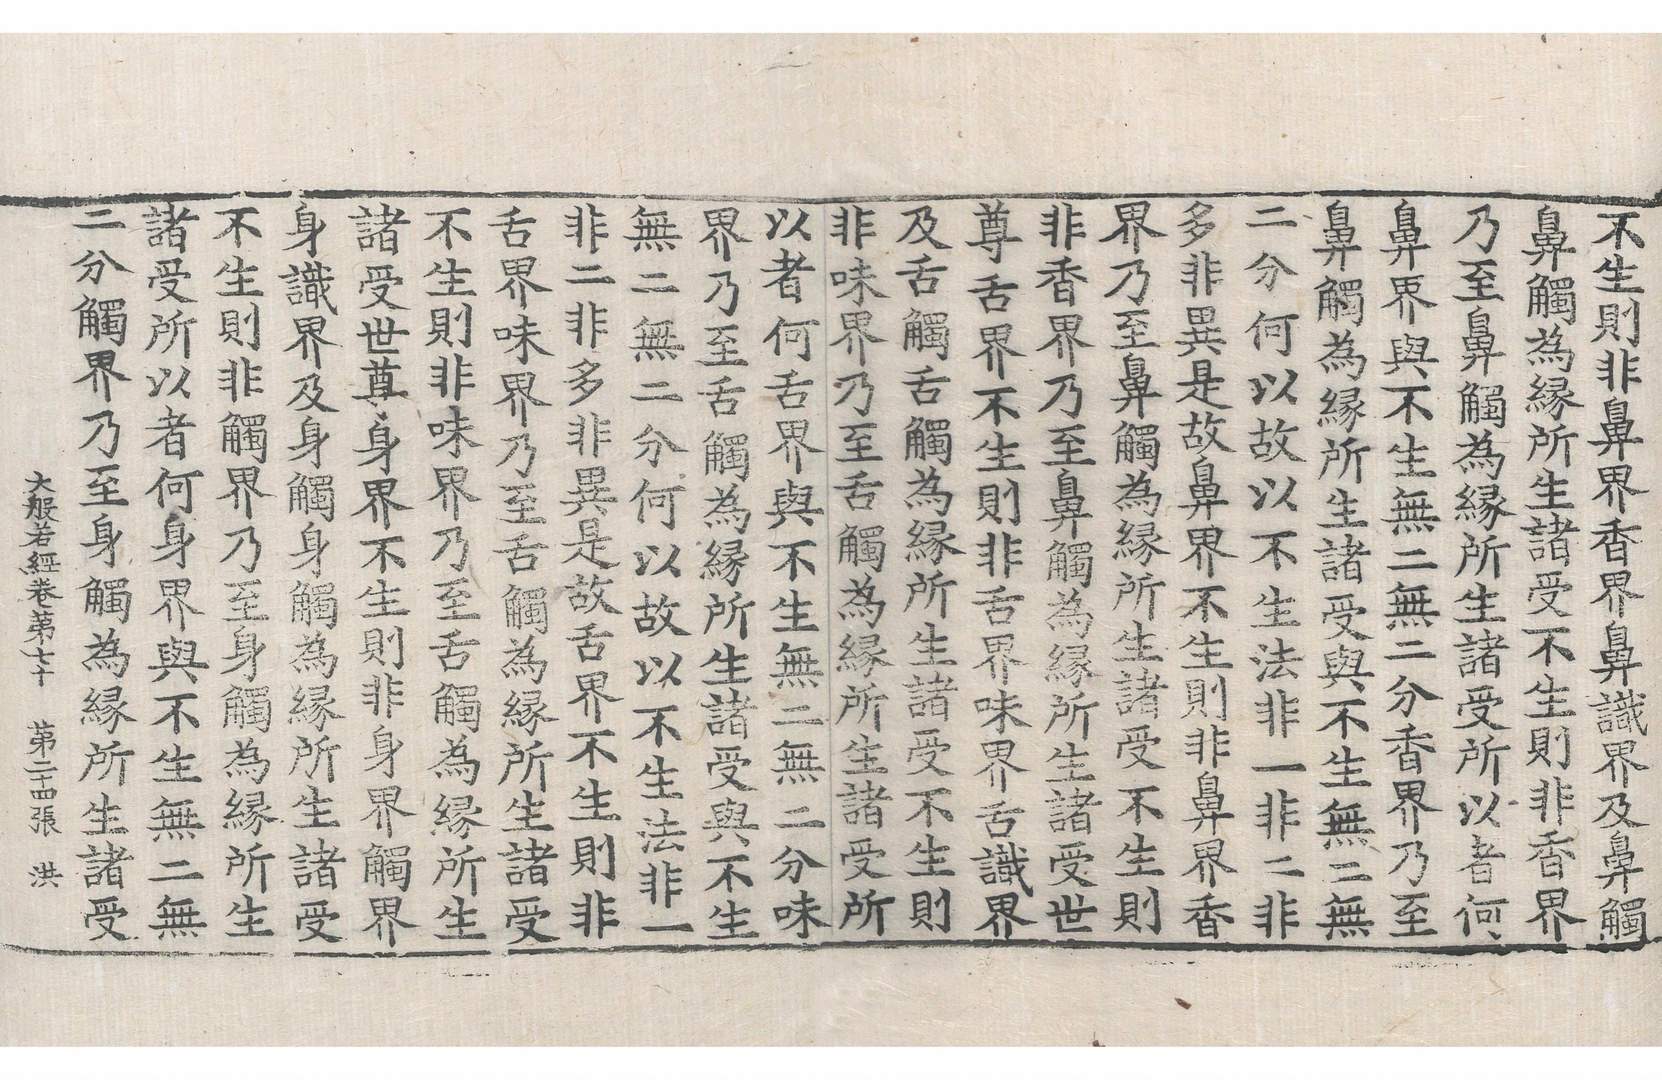 不生則非鼻界香界鼻識界及鼻觸
鼻觸為縁所生諸受不生則非香界
乃至鼻觸為縁所生諸受所以者何
鼻界與不生無二無二分香界乃至
鼻觸為縁所生諸受與不生無二無
二分何以故以不生法非一非二非
多非異是故鼻界不生則非鼻界香
界乃至鼻觸為縁所生諸受不生則
非香界乃至鼻觸為縁所生諸受世
尊舌界不生則非舌界味界舌識界
及舌觸舌觸為縁所生諸受不生則
非味界乃至舌觸為縁所生諸受所
以者何舌界與不生無二無二分味
界乃至舌觸為縁所生諸受與不生
無二無二分何以故以不生法非一
非二非多非異是故舌界不生則非
舌界味界乃至舌觸為縁所生諸受
不生則非味界乃至舌觸為縁所生
諸受世尊身界不生則非身界觸界
身識界及身觸身觸為縁所生諸受
不生則非觸界乃至身觸為縁所生
諸受所以者何身界與不生無二無
二分觸界乃至身觸為縁所生諸受
大般若經卷第七十 第二十四張 洪